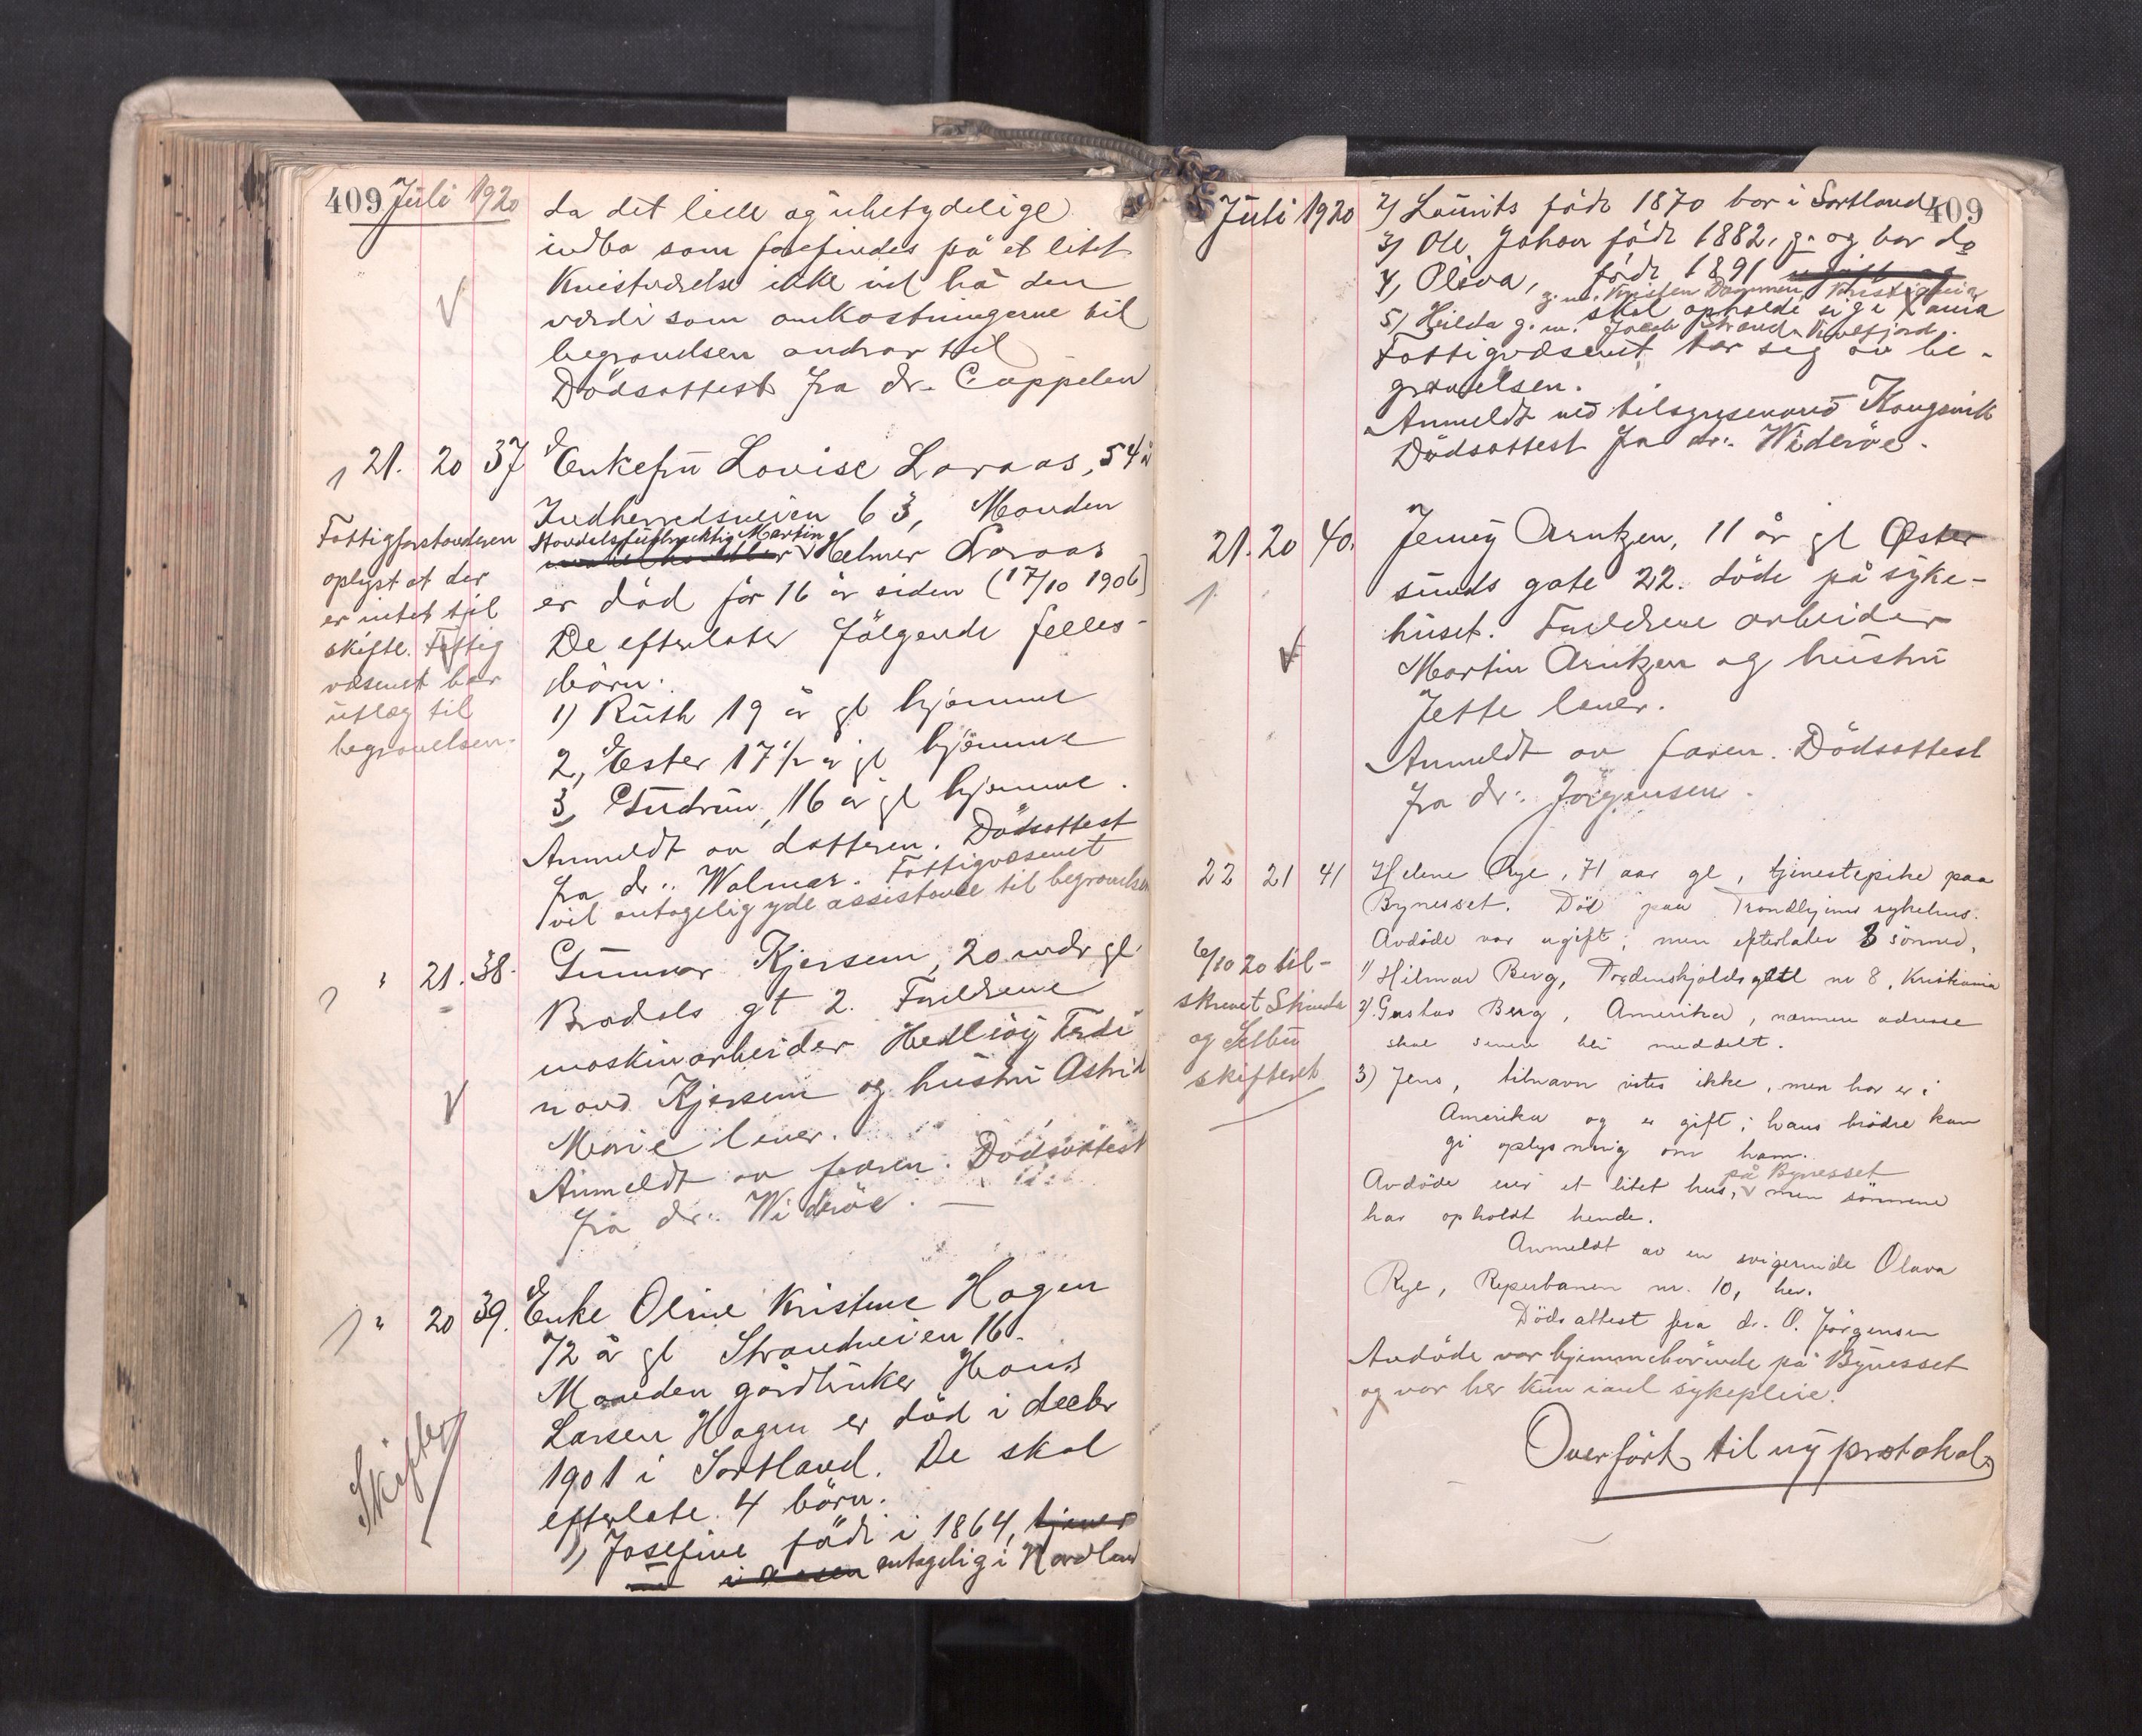 409 Juli 1920
da det lille og ubetydelige
indbo som forefindes på et litet
Kvistværelse ikke vil ha den
værdi som omkostningerne til
begravelsen andrar til
Dödsattest fra dr. Cappelen
21. 20 37 Enkefru Lovise Loraas, 54 å
Indherredsveien 63, Manden
Handelsfuldmektig Martin
Helmer Loraas
er död for 16 år siden (17/10 1906)
De efterlater fölgende felles-
börn.
1) Ruth 19 år gl hjemme
2, Ester 17 1/2 år gl hjemme
3, Gudrun, 16 år gl hjemme.
Anmeldt av datteren. Dödsattest
fra dr. Wolmar. Fattigvæsenet
vil antagelig yde assistance til begravelsen
Fattigforstanderen
oplyst at der
er intet til
skifte. Fattig
væsenet har
utlæg til
begravelsen.
" 21. 38. Gunnar Kjersem, 20 mdr gl.
Bradals gt 2. Foreldrene
maskinarbeider Hedley Ferdi
nand Kjersem og hustru Astrid
Marie lever.
Anmeldt av faren. Dödsattest
fra dr. Wideröe. —
" 20 39. Enke Oline Kristine Hagen
72 år gl Strandveien 16.
Manden gårdbruker Hans
Larsen Hagen er död i decbr
1901 i Sortland. De skal
efterlate 4 börn.
1) Josefine född i 1864, tjener
antagelig i Nordland
Skifter
Juli 1920 409
2) Laurits född 1870 bor i Sortland
3) Ole Johan född 1882, g. og bor do
4, Oliva, född 1891 ugift og
g. m. Kristen Dammen, Kristiania
skal opholde sig i
5) Hilda g. m. Jacob Strand
Fattigvæsenet tar seg av be-
gravelsen.
Anmeldt ved tilsynsmand Kongsvik
Dödsattest fra dr. Wideröe.
21. 20 40. Jenny Arntzen, 11 år gl Øster
sunds gate 22. döde på syke-
huset. Foreldrene arbeider
Martin Arntzen og hustru
Jette lever.
Anmeldt av faren. Dödsattest
fra dr. Jörgensen.
22 21 41 Helene Rye, 71 aar gl, tjenestepike paa
Bynesset. Död paa Trondhjems sykehus.
Avdöde var ugift; men efterlater 3 sönner,
1) Hilmar Berg, Tordenskjolds gate nr 8, Kristiania
2) Gustav Berg, Amerika, nærmere adresse
skal senere bli meddelt.
3) Jens, tilnavn vites ikke, men han er i
Amerika og er gift; hans brödre kan
gi oplysning om ham.
på Bynesset
Avdöde eier et litet hus, men sönnene
har opholdt hende.
Anmeldt av en svigerinde Olava
Rye, Reperbanen nr. 10, her.
Dödsattest fra dr. O. Jörgensen
Avdöde var hjemmehörende på Bynesset
og var her kun i anl sykepleie.
6/10 20 til-
skrevet Strinda
og Selbu
skifteret
Overfört til ny protokol